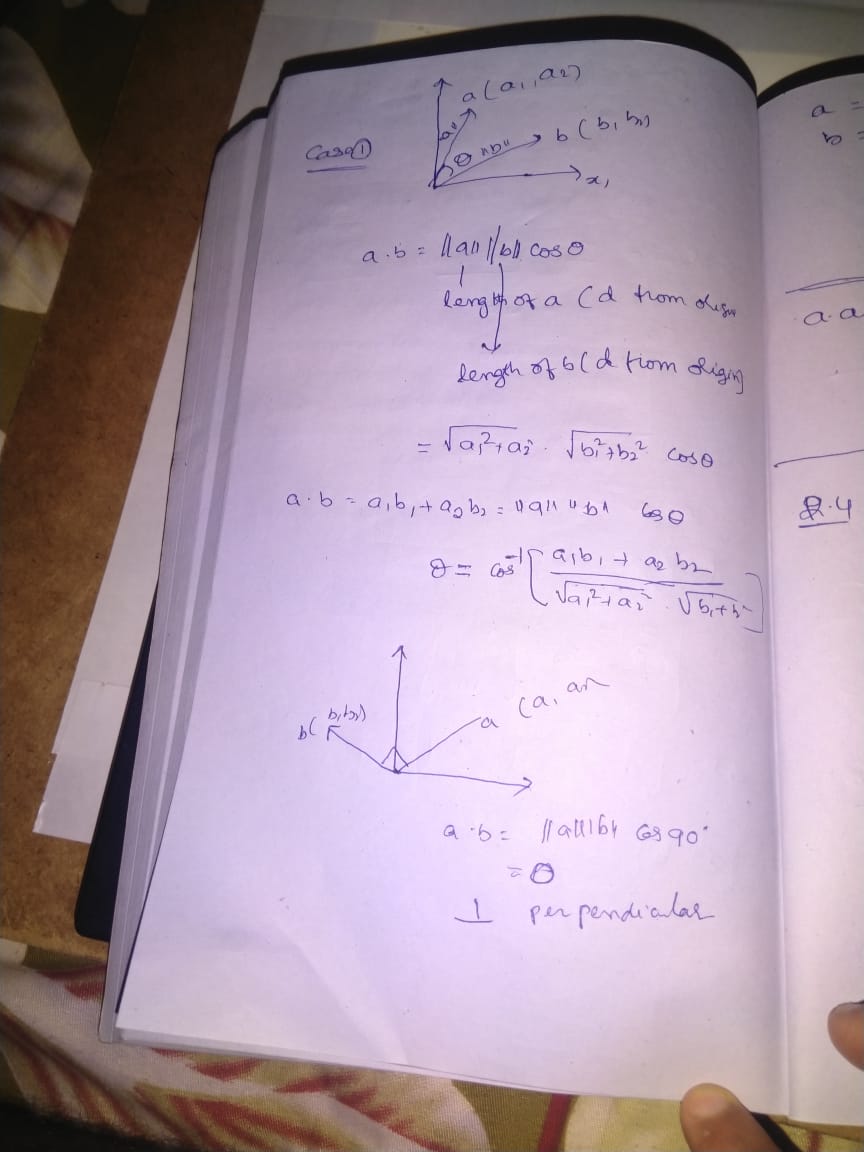 a(a1, a2)
Case①
"a"
θ "b"
b (b1 b2)
x1
a.b = ||a|| ||b|| cos θ
length of a (d from origin
length of b (d from origin)
= √a1²+a2² . √b1²+b2² cos θ
a.b = a1b1 + a2b2 = ||a|| ||b|| cos θ
θ = cos⁻¹[ a1b1 + a2b2 / √a1²+a2² . √b1+b² ]
b( b1b2)
a (a1 a2
a.b = ||a|| ||b|| cos 90°
= 0
⊥ perpendicular
a =
b =
a.a
Q.4